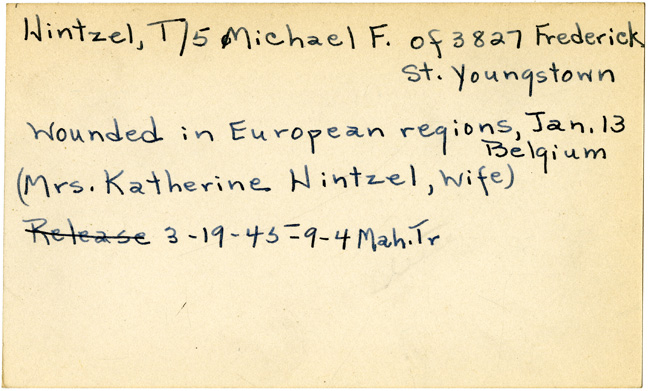 Hintzel, T/5 Michael F. of 3827 Frederick
St. Youngstown
Wounded in European regions, Jan. 13
Belgium
(Mrs. Katherine Hintzel, wife)
Release 3-19-45-9-4 Mah. Tr